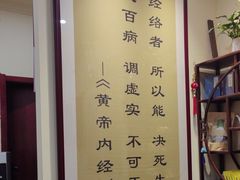 经络者 所以能 决死生
百病 调虚实 不可不
——《黄帝内经